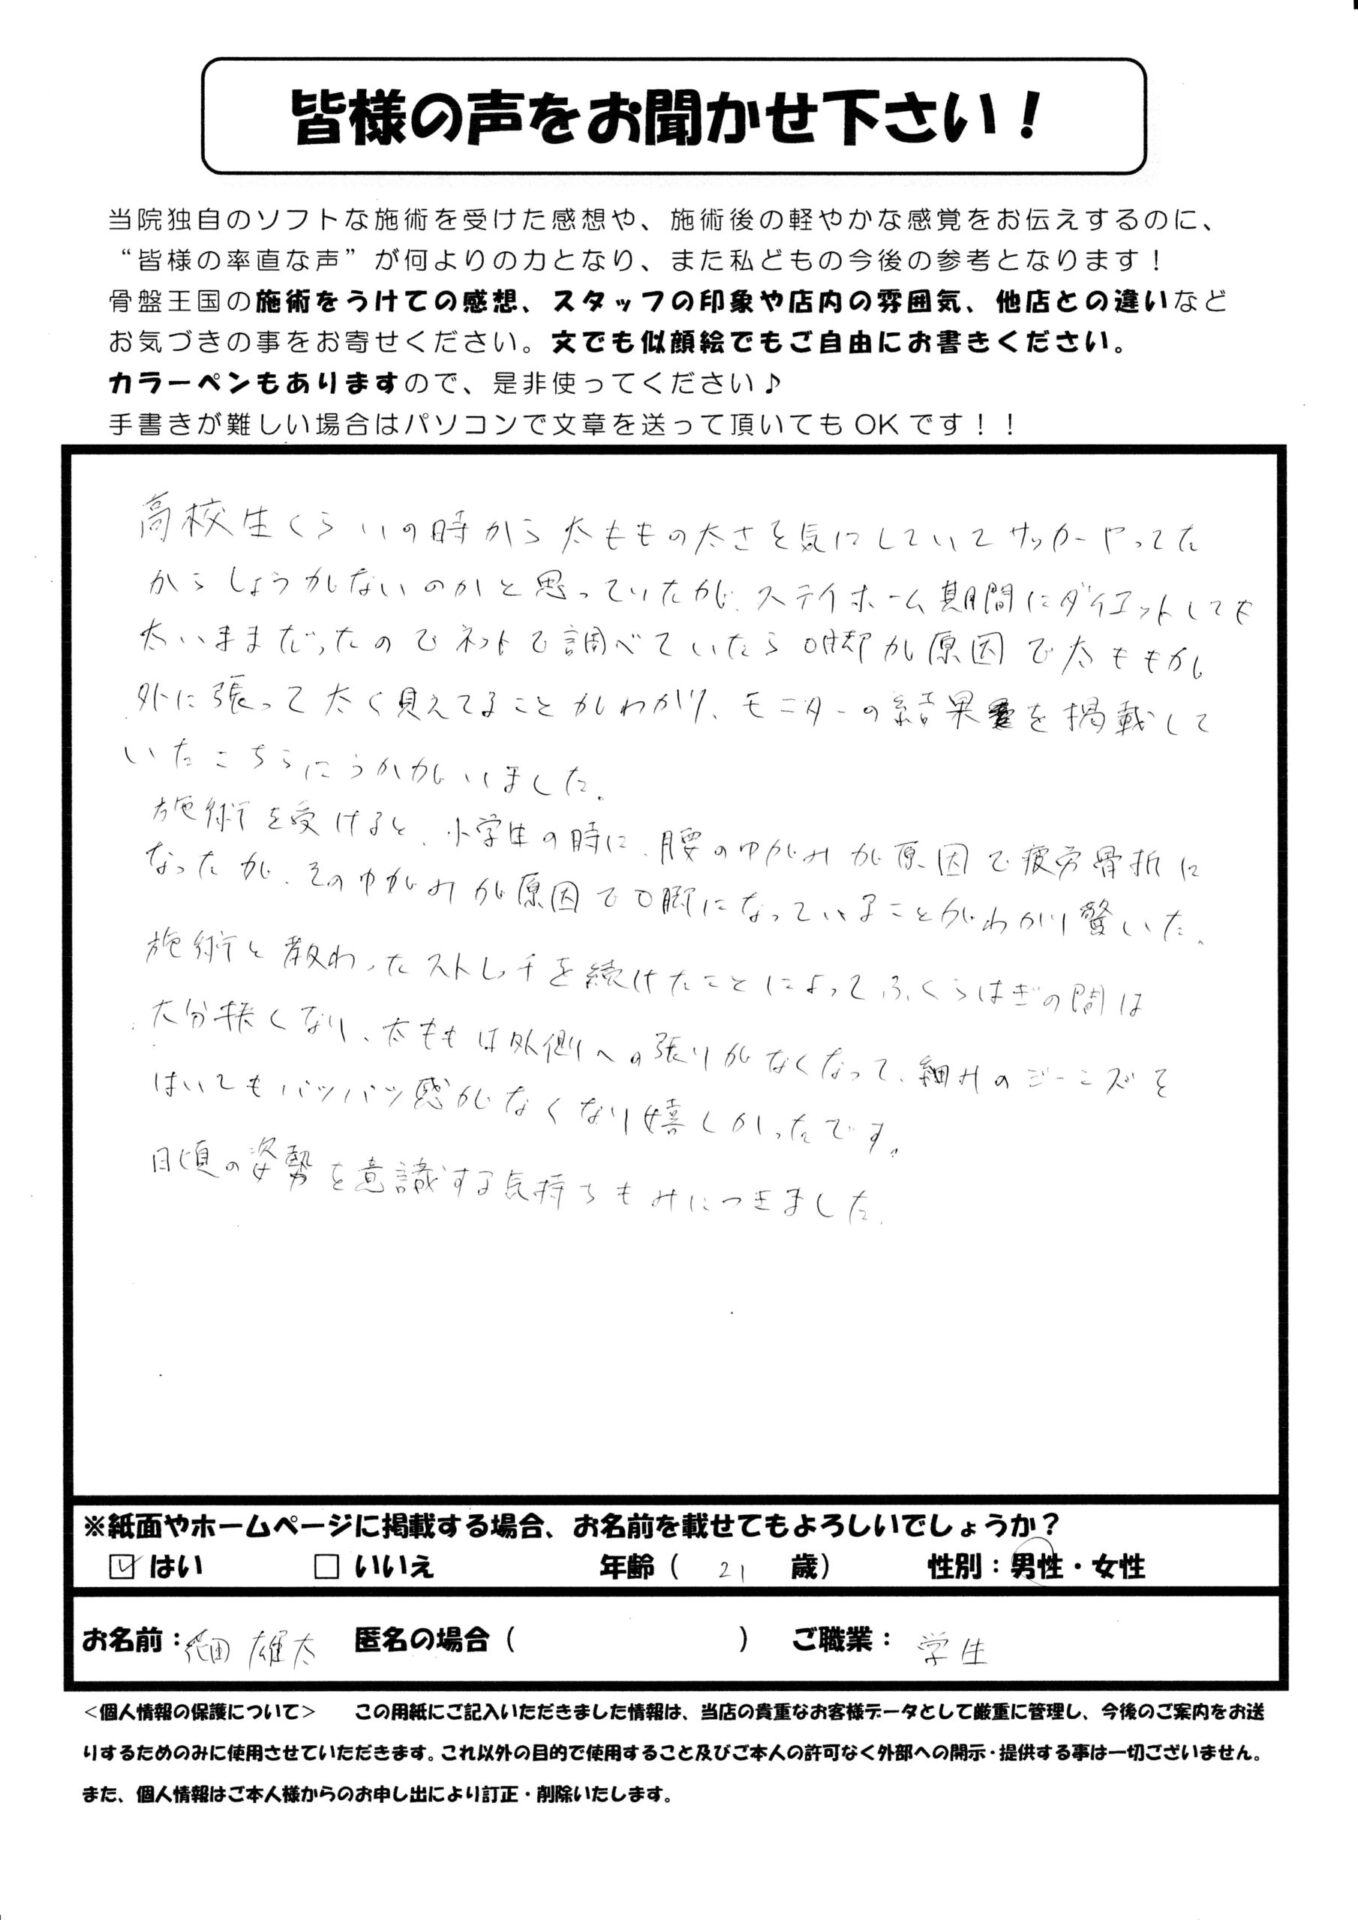 皆様の声をお聞かせ下さい！
当院独自のソフトな施術を受けた感想や、施術後の軽やかな感覚をお伝えするのに、
“皆様の率直な声”が何よりの力となり、また私どもの今後の参考となります！
骨盤王国の施術をうけての感想、スタッフの印象や店内の雰囲気、他店との違いなど
お気づきの事をお寄せください。文でも似顔絵でもご自由にお書きください。
カラーペンもありますので、是非使ってください♪
手書きが難しい場合はパソコンで文章を送って頂いてもOKです！！
高校生くらいの時から太ももの太さを気にしていてサッカーやってた
からしょうがないのかと思っていたが、ステイホーム期間にダイエットしても
太いままだったのでネットで調べていたらO脚が原因で太ももが
外に張って太く見えてることがわかり、モニターの結果を掲載して
いたこちらにうかがいました。
施術を受けると、小学生の時に、腰のゆがみが原因で疲労骨折に
なったが、そのゆがみが原因でO脚になっていることがわかり驚いた。
施術と教わったストレッチを続けたことによってふくらはぎの間は
大分狭くなり、太ももは外側への張りがなくなって、細みのジーンズを
はいてもパツパツ感がなくなり嬉しかったです。
日頃の姿勢を意識する気持ちもみにつきました。
※紙面やホームページに掲載する場合、お名前を載せてもよろしいでしょうか？
☑はい □いいえ 年齢（ 21 歳） 性別：男性・女性
お名前： 細田 雄太 匿名の場合（ ） ご職業： 学生
＜個人情報の保護について＞ この用紙にご記入いただきました情報は、当店の貴重なお客様データとして厳重に管理し、今後のご案内をお送
りするためのみに使用させていただきます。これ以外の目的で使用すること及びご本人の許可なく外部への開示・提供する事は一切ございません。
また、個人情報はご本人様からのお申し出により訂正・削除いたします。